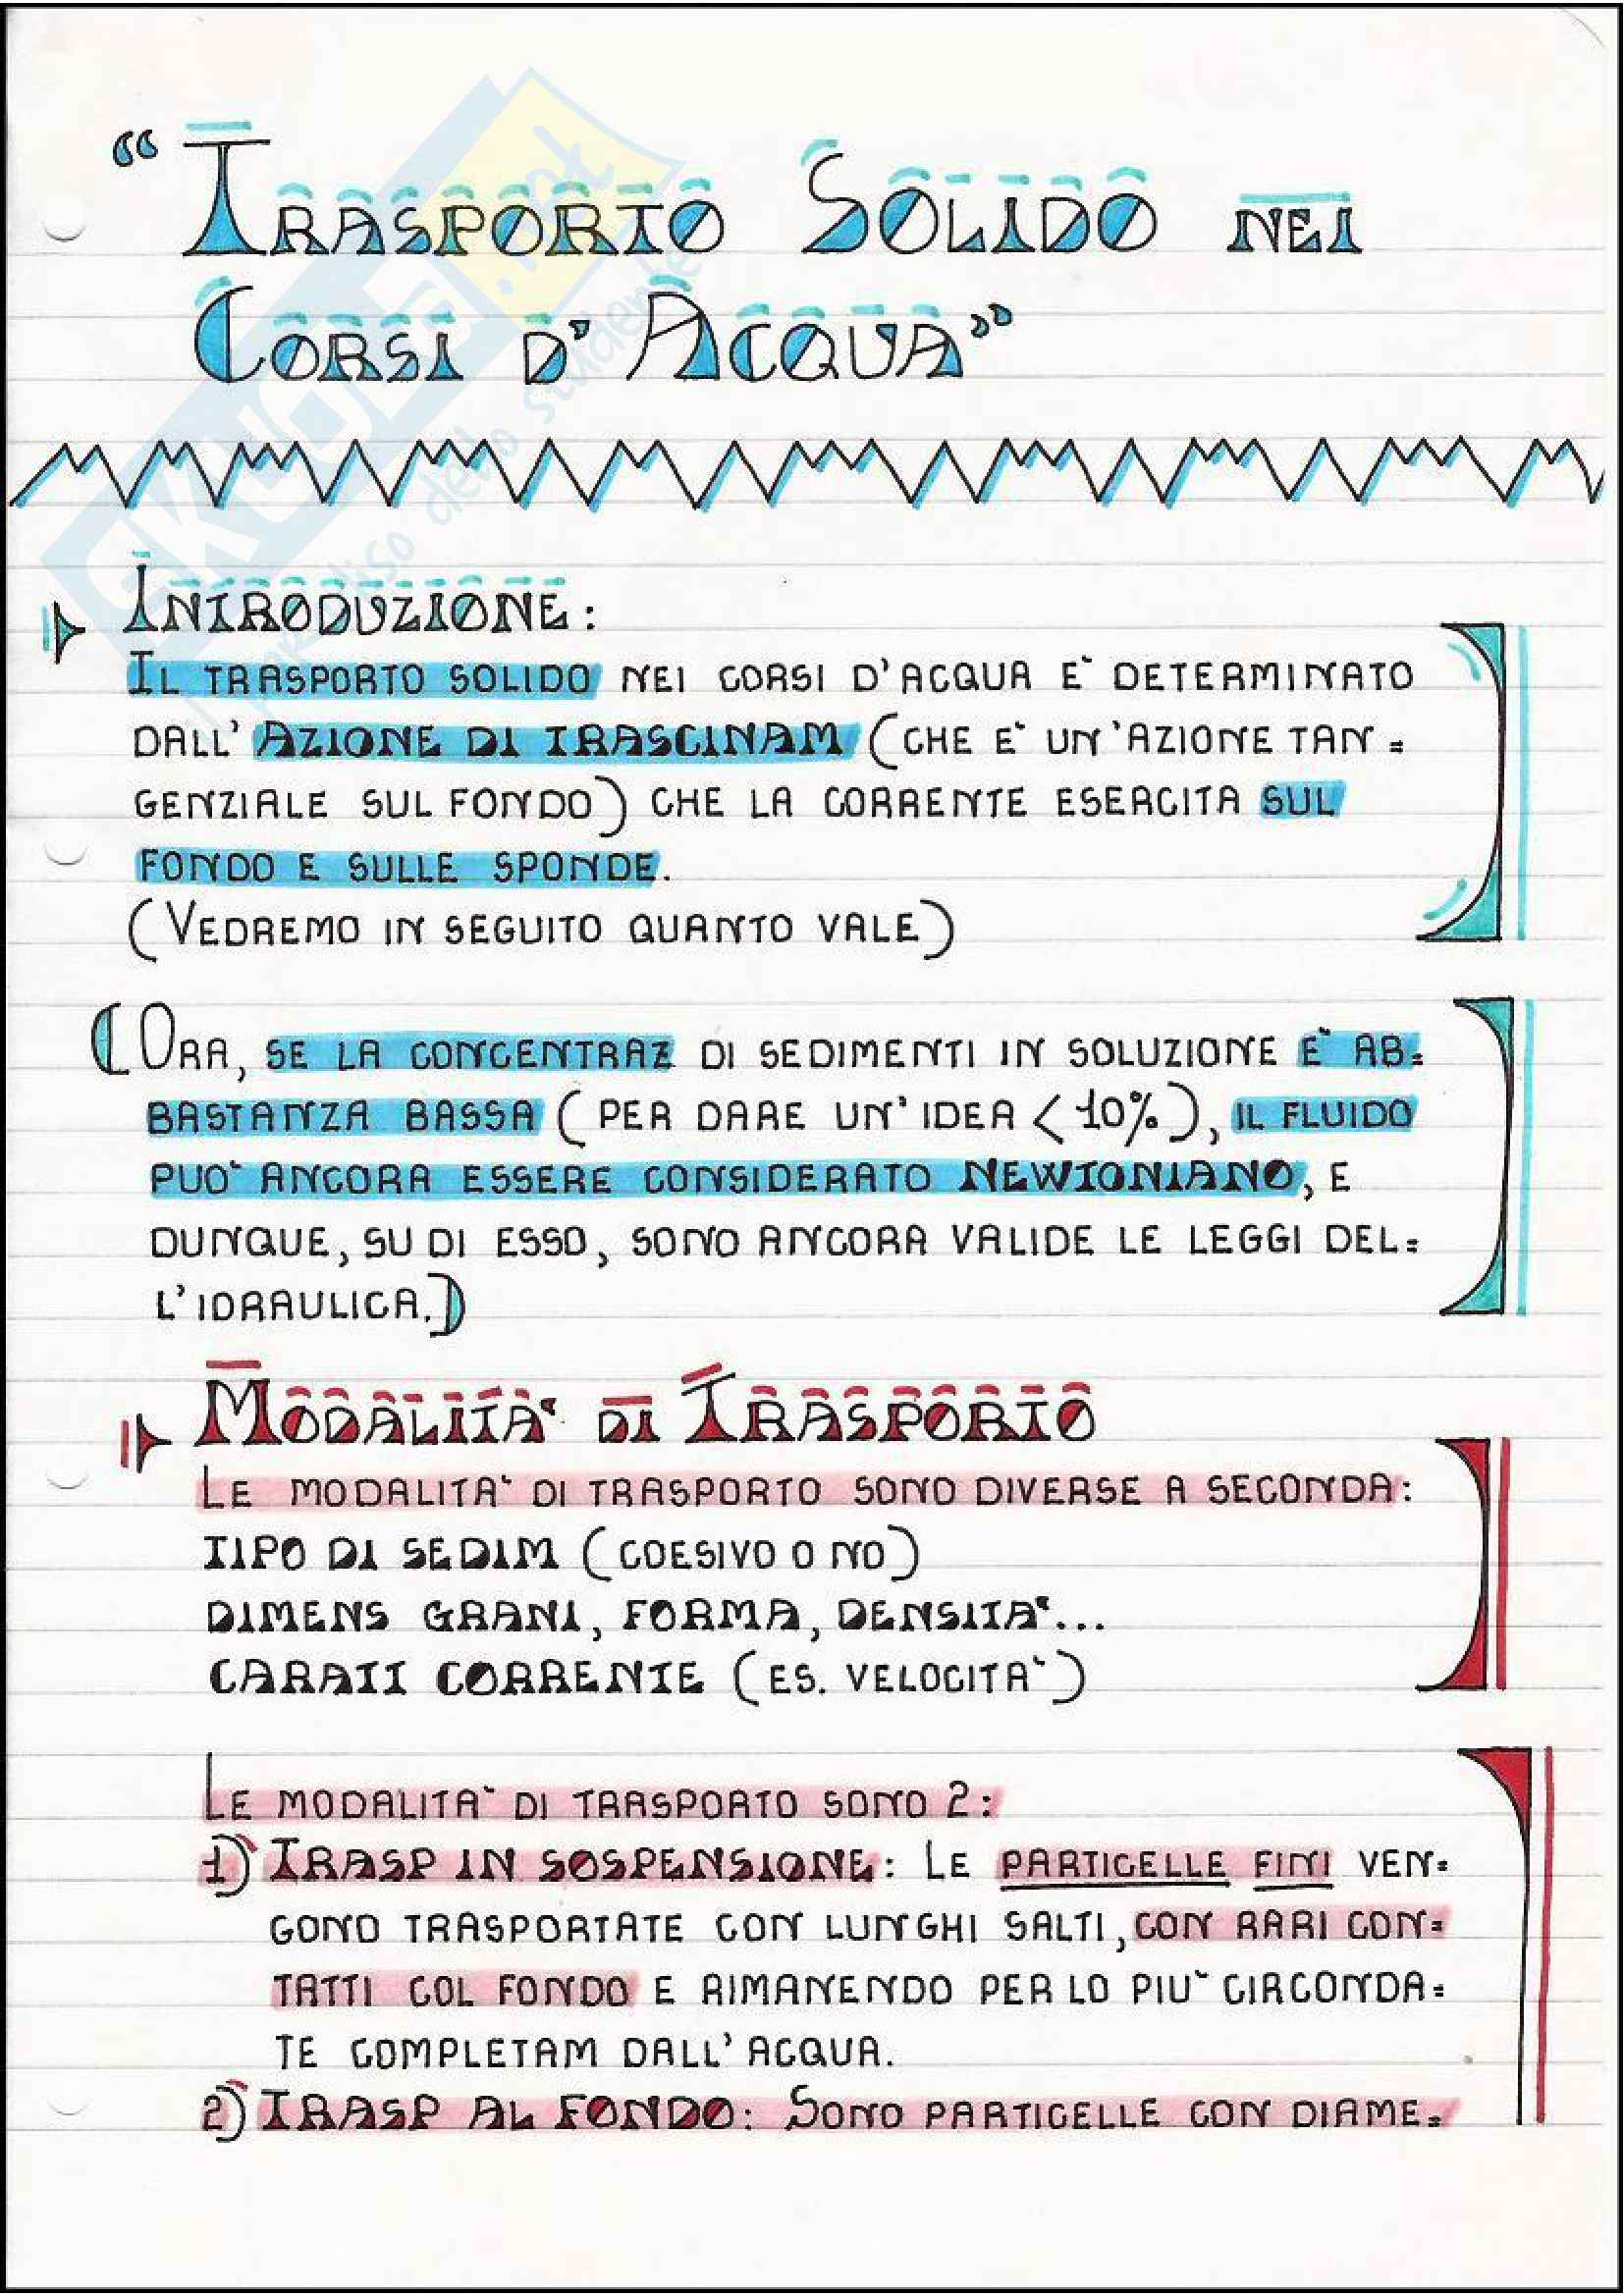 “Trasporto Solido nei
Corsi d'Acqua”
Introduzione:
Il trasporto solido nei corsi d'acqua e` determinato
dall'azione di trascinam (che e` un'azione tan=
genziale sul fondo) che la corrente esercita sul
fondo e sulle sponde.
(Vedremo in seguito quanto vale)
(Ora, se la concentraz di sedimenti in soluzione e` ab=
bastanza bassa (per dare un'idea <10%), il fluido
puo` ancora essere considerato newtoniano, e
dunque, su di esso, sono ancora valide le leggi del=
l'idraulica.)
Modalita` di Trasporto
Le modalita` di trasporto sono diverse a seconda:
tipo di sedim (coesivo o no)
dimens grani, forma, densita`...
caratt corrente (es. velocita`)
Le modalita` di trasporto sono 2:
1) Trasp in sospensione: Le particelle fini ven=
gono trasportate con lunghi salti, con rari con=
tatti col fondo e rimanendo per lo piu` circonda=
te completam dall'acqua.
2) Trasp al fondo: Sono particelle con diame=